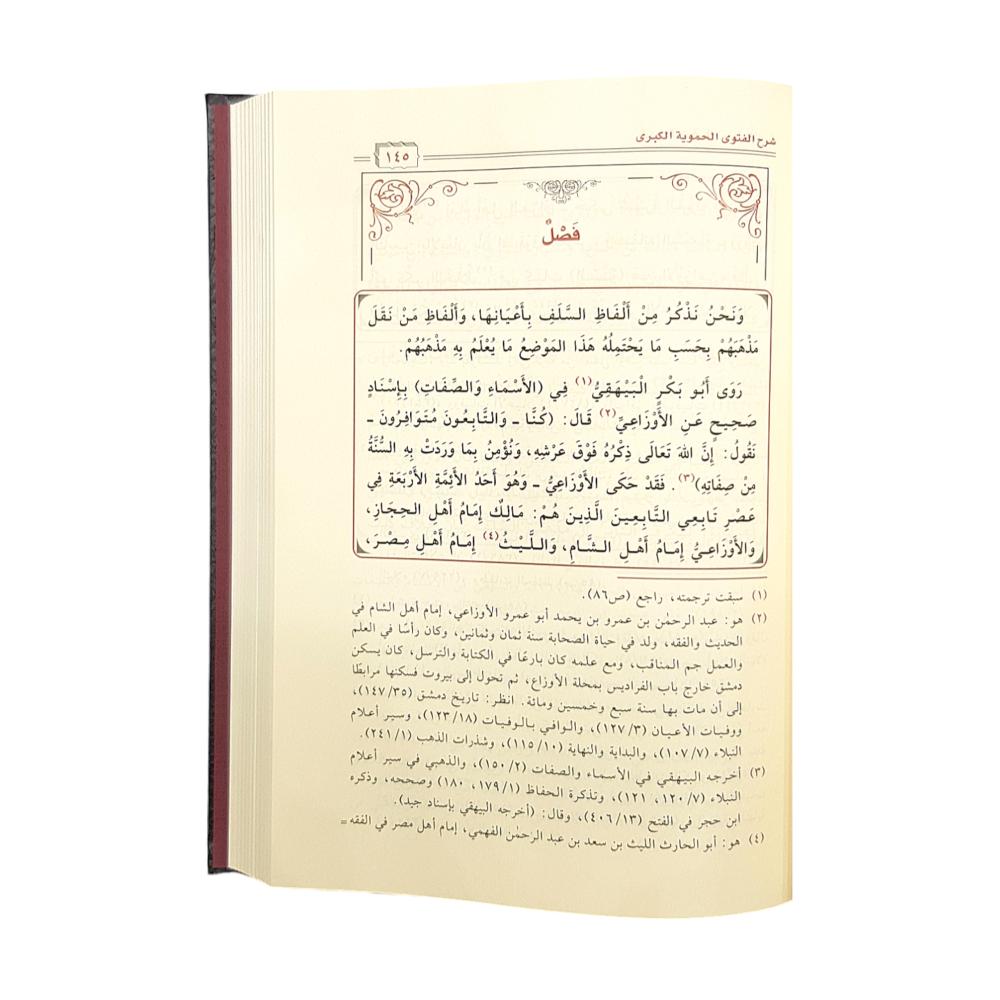 شرح الفتوى الحموية الكبرى
١٤٥
فَصْلٌ
وَنَحْنُ نَذْكُرُ مِنْ أَلْفَاظِ السَّلَفِ بِأَعْيَانِهَا، وَأَلْفَاظِ مَنْ نَقَلَ
مَذْهَبَهُمْ بِحَسَبِ مَا يَحْتَمِلُهُ هَذَا المَوْضِعُ مَا يُعْلَمُ بِهِ مَذْهَبُهُمْ.
رَوَى أَبُو بَكْرٍ الْبَيْهَقِيُّ(١) فِي (الأَسْمَاءِ وَالصِّفَاتِ) بِإِسْنَادٍ
صَحِيحٍ عَنِ الأَوْزَاعِيِّ(٢) قَالَ: (كُنَّا ـ وَالتَّابِعُونَ مُتَوَافِرُونَ ـ
نَقُولُ: إِنَّ اللهَ تَعَالَى ذِكْرُهُ فَوْقَ عَرْشِهِ، وَنُؤْمِنُ بِمَا وَرَدَتْ بِهِ السُّنَّةُ
مِنْ صِفَاتِهِ)(٣). فَقَدْ حَكَى الأَوْزَاعِيُّ ـ وَهُوَ أَحَدُ الأَئِمَّةِ الأَرْبَعَةِ فِي
عَصْرِ تَابِعِي التَّابِعِينَ الَّذِينَ هُمْ: مَالِكٌ إِمَامُ أَهْلِ الحِجَازِ،
وَالأَوْزَاعِيُّ إِمَامُ أَهْلِ الشَّامِ، وَاللَّيْثُ(٤) إِمَامُ أَهْلِ مِصْرَ،
(١) سبقت ترجمته، راجع (ص٨٦).
(٢) هو: عبد الرحمٰن بن عمرو بن يحمد أبو عمرو الأوزاعي، إمام أهل الشام في
الحديث والفقه، ولد في حياة الصحابة سنة ثمان وثمانين، وكان رأسًا في العلم
والعمل جم المناقب، ومع علمه كان بارعًا في الكتابة والترسل، كان يسكن
دمشق خارج باب الفراديس بمحلة الأوزاع، ثم تحول إلى بيروت فسكنها مرابطًا
إلى أن مات بها سنة سبع وخمسين ومائة. انظر: تاريخ دمشق (١٤٧/٣٥)،
ووفيات الأعيان (١٢٧/٣)، والوافي بالوفيات (١٢٣/١٨)، وسير أعلام
النبلاء (١٠٧/٧)، والبداية والنهاية (١١٥/١٠)، وشذرات الذهب (٢٤١/١).
(٣) أخرجه البيهقي في الأسماء والصفات (١٥٠/٢)، والذهبي في سير أعلام
النبلاء (١٢٠/٧، ١٢١)، وتذكرة الحفاظ (١٧٩/١، ١٨٠) وصححه، وذكره
ابن حجر في الفتح (٤٠٦/١٣)، وقال: (أخرجه البيهقي بإسناد جيد).
(٤) هو: أبو الحارث الليث بن سعد بن عبد الرحمٰن الفهمي، إمام أهل مصر في الفقه =